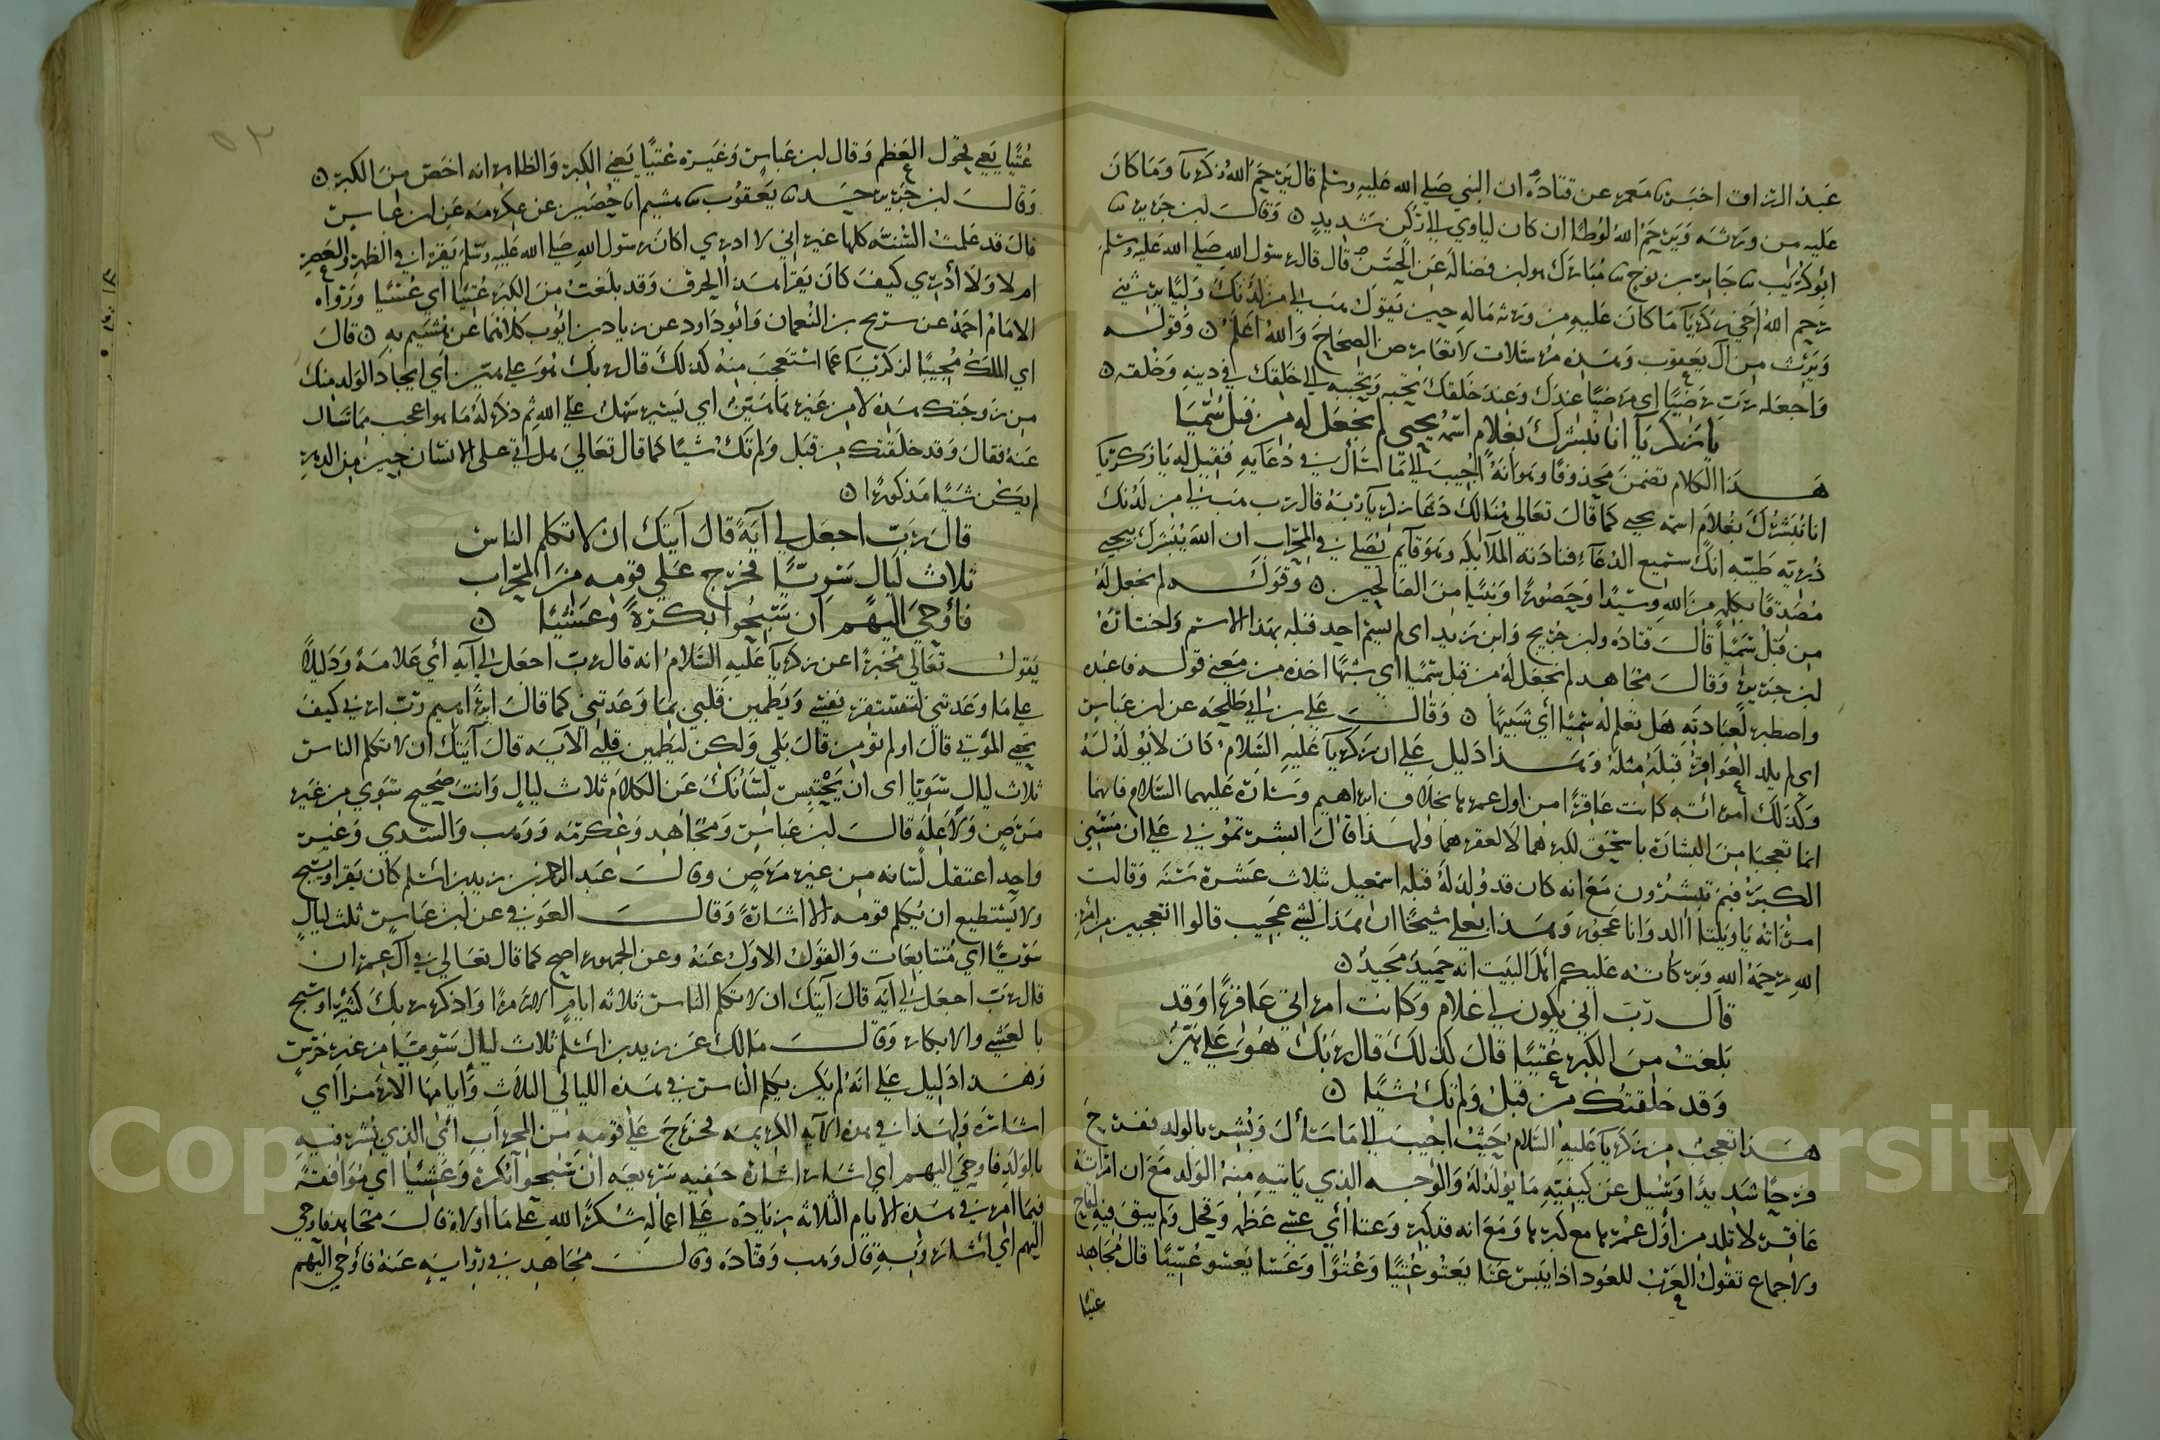 عبد الرزاق اخبرنا معمر عن قتادة ان النبي صلي الله عليه وسلم قال يرحم الله زكريا وما كان
عليه من ورثته ويرحم الله لوطا ان كان لياوي الي ركن شديد ○ وقال ابن جرير ثنا
ابو كريب ثنا جابر بن نوح ثنا مبارك هو ابن فضالة عن الحسن قال قال رسول الله صلي الله عليه وسلم
رحم الله اخي زكريا ما كان عليه من ورثة ماله حين يقول هب لي من لدنك وليا يرثني
ويرث من آل يعقوب وهذه مرسلات لا تعارض الصحاح والله اعلم ○ وقوله
واجعله رب رضيا اي مرضيا عندك وعند خلقك تحبه وتحببه الي خلقك في دينه وخلقه ○
يا زكريا انا نبشرك بغلام اسمه يحيي لم نجعل له من قبل سميا
هذا الكلام تضمن محذوفا وهو انه اجيب الي ما سأل في دعايه فقيل له يا زكريا
انا نبشرك بغلام اسمه يحيي كما قال تعالي هنالك دعا زكريا ربه قال رب هب لي من لدنك
ذرية طيبة انك سميع الدعاء فنادته الملايكة وهو قايم يصلي في المحراب ان الله يبشرك بيحيي
مصدقا بكلمة من الله وسيدا وحصورا ونبيا من الصالحين ○ وقوله لم نجعل له
من قبل سميا قال قتادة وابن جريج وابن زيد اي لم يسم احد قبله بهذا الاسم واختاره
ابن جرير وقال مجاهد لم نجعل له من قبل سميا اي شبها اخذه من معني قوله فاعبده
واصطبر لعبادته هل تعلم له سميا أي شبيها ○ وقال علي بن ابي طلحه عن ابن عباس
اي لم يلد العواقر قبله مثله وهذا دليل علي ان زكريا عليه السلام كان لا يولد له
وكذلك أمرأته كانت عاقرا من اول عمرها بخلاف ابراهيم وسارة عليهما السلام فانهما
انما تعجبا من البشارة باسحق لكبرهما لا لعقرهما ولهذا قال ابشرتموني علي ان مسني
الكبر فبم تبشرون مع انه كان قد ولد له قبله اسمعيل بثلاث عشرة سنة وقالت
امرأته يا ويلتا أألد وانا عجوز وهذا بعلي شيخا ان هذا لشي عجيب قالوا اتعجبين من امر
الله رحمة الله وبركاته عليكم أهل البيت انه حميد مجيد ○
قال رب اني يكون لي غلام وكانت امراتي عاقرا وقد
بلغت من الكبر عتيا قال كذلك قال ربك هو علي هين
وقد خلقتك من قبل ولم تك شيا ○
هذا تعجب من زكريا عليه السلام حيث اجيب الي ما سأل وبشر بالولد ففرح
فرحا شديدا وسيل عن كيفية ما يولد له والوجه الذي ياتيه منه الولد مع ان امراته
عاقر لا تلد من أول عمرها مع كبرها ومع انه قد كبر وعتا أي عتي عظمه ونحل ولم يبق فيه لقاح
ولا جماع تقول العرب للعود اذا يبس عتا يعتو عتيا وعتوا وعسا يعسو عسيا قال مجاهد
عتيا
عتيا يعني نحول العظم وقال ابن عباس وغيره عتيا يعني الكبر والظاهر انه اخص من الكبر ○
وقال ابن جرير حدثنا يعقوب ثنا هشيم انا حصين عن عكرمه عن ابن عباس
قال قد علمت السنة كلها غير اني لا ادري اكان رسول الله صلي الله عليه وسلم يقرا في الظهر والعصر
ام لا ولا أدري كيف كان يقرا هذا الحرف وقد بلغت من الكبر عتيا أي عسيا ورواه
الامام احمد عن سريج بن النعمان وابو داود عن زياد بن ايوب كلاهما عن هشيم به ○ قال
اي الملك مجيبا لزكريا عما استعجب منه كذلك قال ربك هو علي هين أي ايجاد الولد منك
من زوجتك هذه لا من غيرها هين اي يسير سهل علي الله ثم ذكر له ما هو اعجب مما سال
عنه فقال وقد خلقتك من قبل ولم تك شيا كما قال تعالي هل اتي علي الانسان حين من الدهر
لم يكن شيا مذكورا ○
قال رب اجعل لي آية قال آيتك ان لا تكلم الناس
ثلاث ليال سويا فخرج علي قومه من المحراب
فأوحي اليهم ان سبحوا بكرة وعشيا ○
يقول تعالي مخبرا عن زكريا عليه السلام انه قال رب اجعل لي آية أي علامة ودليلا
علي ما وعدتني لتستقر نفسي ويطمين قلبي بما وعدتني كما قال ابراهيم رب ارني كيف
تحيي الموتي قال اولم تؤمن قال بلي ولكن ليطمين قلبي الآية قال آيتك ان لا تكلم الناس
ثلاث ليال سويا اى ان يحتبس لسانك عن الكلام ثلاث ليال وانت صحيح سوي من غير
مرض ولا علة قال ابن عباس ومجاهد وعكرمه ووهب والسدي وغير
واحد اعتقل لسانه من غير مرض وقال عبد الرحمن بن زيد بن اسلم كان يقرا ويسبح
ولا يستطيع ان يكلم قومه الا اشارة وقال العوفي عن ابن عباس ثلث ليال
سويا اي متتابعات والقول الاول عنه وعن الجمهور اصح كما قال تعالي في آل عمران
قال رب اجعل لي آية قال آيتك ان لا تكلم الناس ثلاثة ايام الا رمزا واذكر ربك كثيرا وسبح
بالعشي والابكار وقال مالك عن زيد بن اسلم ثلاث ليال سويا من غير خرس
وهذا دليل علي انه لم يكن يكلم الناس في هذه الليالي الثلاث وأيامها الا رمزا اي
اشارة ولهذا في هذه الآية الكريمة فخرج علي قومه من المحراب أي الذي بشر فيه
بالولد فاوحي اليهم اي اشار اشارة خفيه سريعه ان سبحوا بكرة وعشيا أي موافقة
فيما امر في هذه الايام الثلاثة زيادة علي اعماله شكرا لله علي ما اولاه قال مجاهد فاوحي
اليهم اي أشار وبه قال وهب وقتادة وقال مجاهد في رواية عنه فأوحي اليهم
Copyright © King Saud University